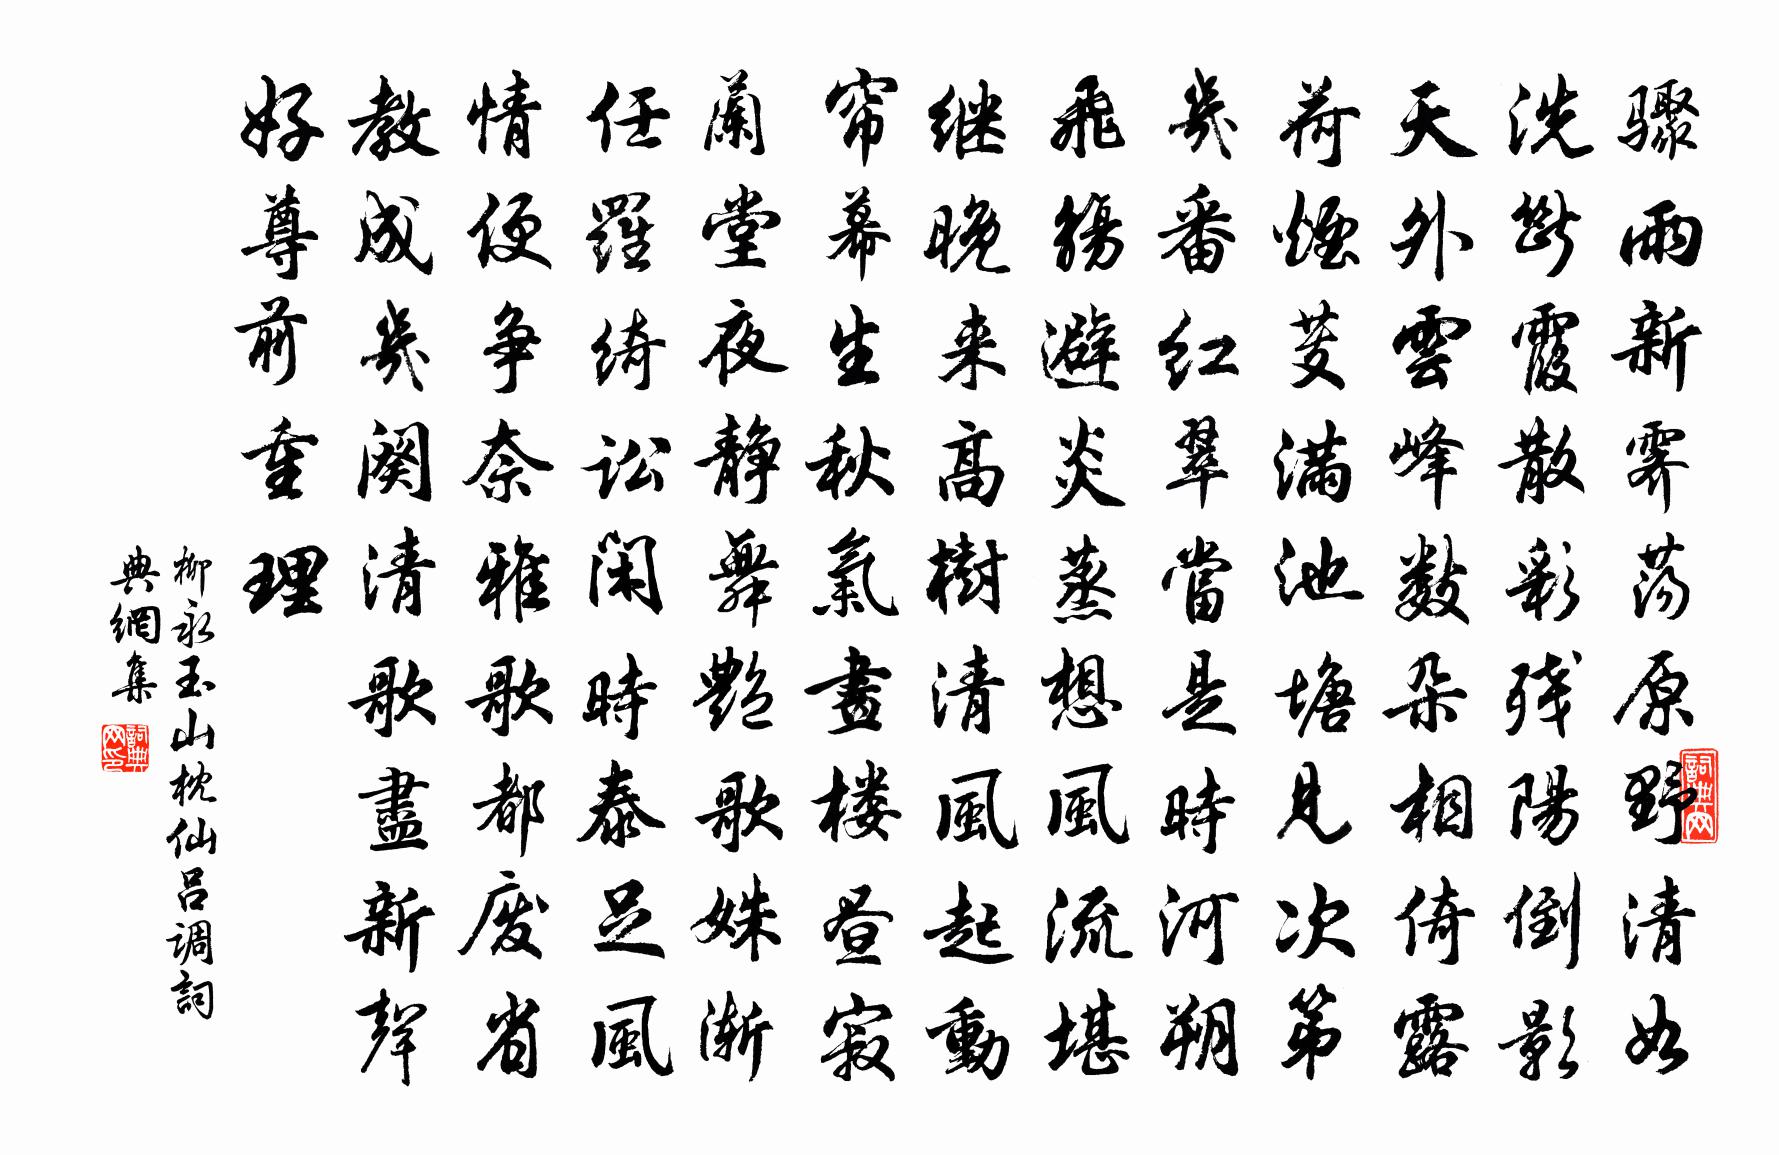 驟雨新霽荡原野清如
洗断霞散彩残陽倒影
天外雲峰數朵相倚露
荷煙芰滿池塘見次第
幾番红翠當是時河朔
飛觴避炎蒸想風流堪
继晚来高樹清風起動
帘幕生秋氣畫楼昼寂
蘭堂夜靜舞艷歌姝漸
任羅绮讼闲時泰足風
情便争奈雅歌都廢省
教成幾阕清歌盡新聲
好尊前重理
柳永玉山枕仙吕调詞
典網集
詞典网
詞典网印